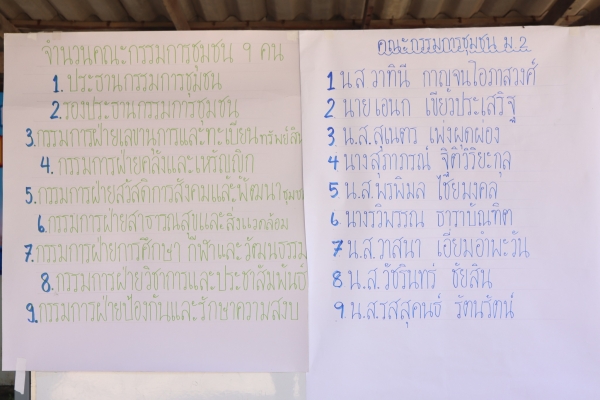 จำนวนคณะกรรมการชุมชน 9 คน
1. ประธานกรรมการชุมชน
2. รองประธานกรรมการชุมชน
3. กรรมการฝ่ายเลขานุการและทะเบียนทรัพย์สิน
4. กรรมการฝ่ายคลังและเหรัญญิก
5. กรรมการฝ่ายสวัสดิการสังคมและพัฒนาชุมชน
6. กรรมการฝ่ายสาธารณสุขและสิ่งแวดล้อม
7. กรรมการฝ่ายการศึกษา กีฬาและวัฒนธรรม
8. กรรมการฝ่ายวิชาการและประชาสัมพันธ์
9. กรรมการฝ่ายป้องกันและรักษาความสงบ
คณะกรรมการชุมชน ม.2
1 น.ส วาทินี กาญจนโอภาสวงศ์
2 นายเอนก เขียวประเสริฐ
3 น.ส.สุเนตร เพ่งผุดผ่อง
4 นางสุภาภรณ์ ฐิติวิริยะกุล
5 น.ส.พรพิมล ไชยมงคล
6 นางรวิพรรณ ธาราบัณฑิต
7 น.ส.วาสนา เอี่ยมอำพะวัน
8 น.ส.วัชรินทร์ ชัยสิน
9 น.ส.รสสุคนธ์ รัตนรัตน์